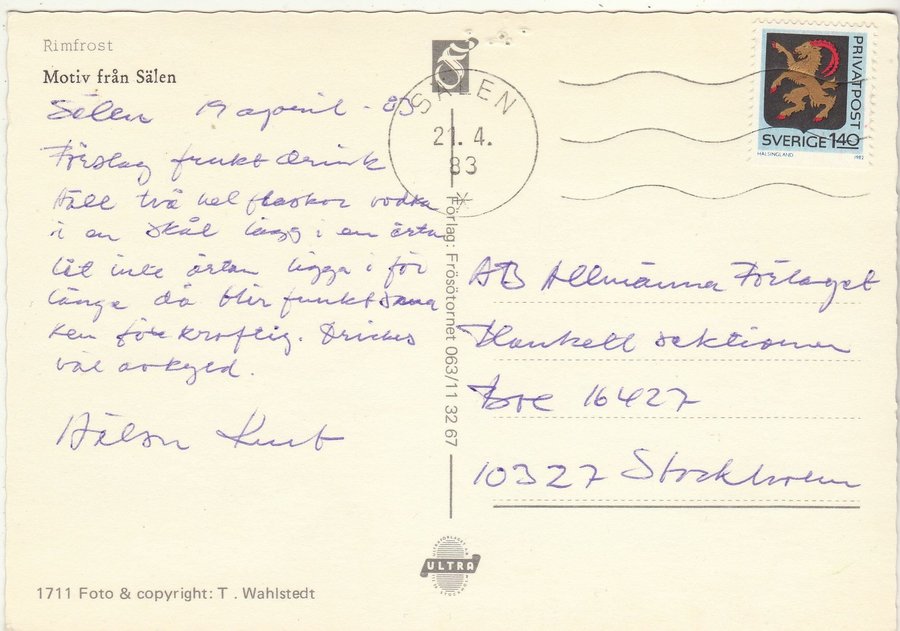 Rimfrost
Motiv från Sälen
Sälen 19 april - 83
Förslag frukt drink
Häll två hel flaskor vodka
i en skål lägg i en ärta
låt inte ärtan ligga i för
länge då blir fruktsma
ken för kraftig. Drickes
väl avkyld.
Hälsn Kurt
SÄLEN
21. 4.
83
Förlag: Frösötornet 063/11 32 67
PRIVATPOST
SVERIGE 140
HÄLSINGLAND 1982
AB Allmänna Förlaget
Blankett sektionen
Box 16427
10327 Stockholm
ULTRA
1711 Foto & copyright: T . Wahlstedt